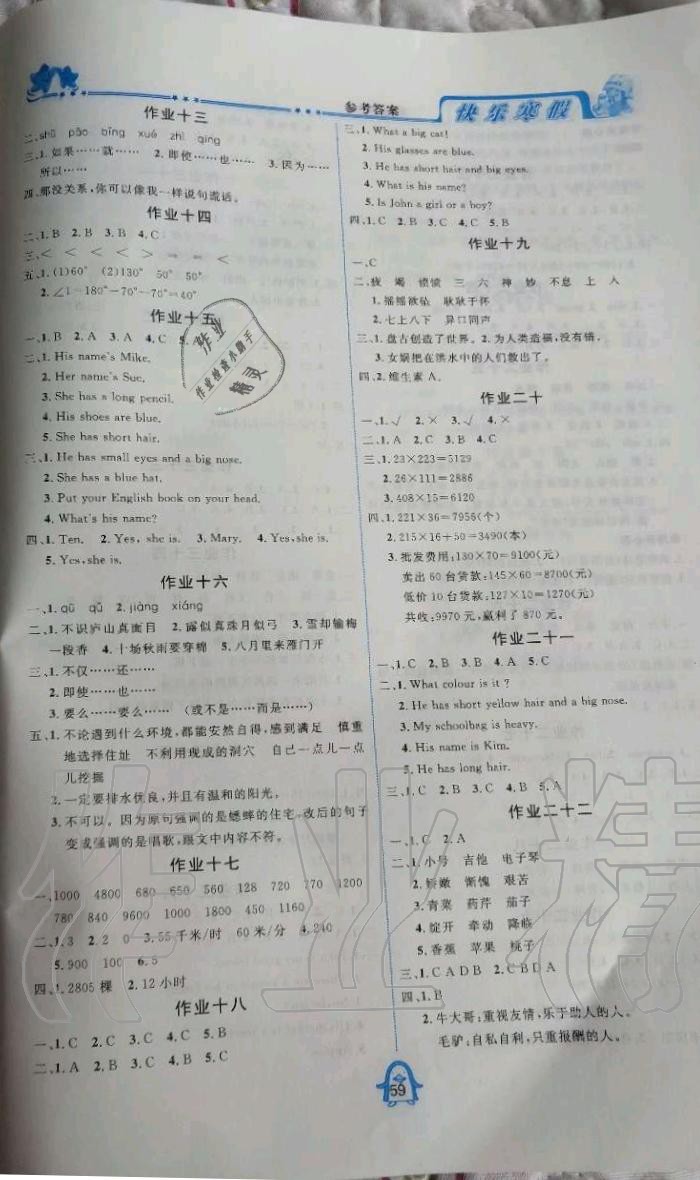 参考答案
快乐寒假
作业十三
二、shū pāo bīng xué zhì qíng
三、1. 如果……就…… 2. 即使……也…… 3. 因为……
所以……
四、那没关系,你可以像我一样说句谎话。
作业十四
二、1. B 2. B 3. B 4. C
三、< < < < = >
五、1. (1)60° (2)130° 50° 50°
2. ∠1=180°-70°-70°=40°
作业十五
一、1. B 2. A 3. A 4. C
二、1. His name's Mike.
2. Her name's Sue.
3. She has a long pencil.
4. His shoes are blue.
5. She has short hair.
三、1. He has small eyes and a big nose.
2. She has a blue hat.
3. Put your English book on your head.
4. What's his name?
四、1. Ten. 2. Yes, she is. 3. Mary. 4. Yes, she is.
5. Yes, she is.
作业十六
一、1. qū qǔ 2. jiàng xiáng
二、1. 不识庐山真面目 2. 露似真珠月似弓 3. 雪却输梅
一段香 4. 十场秋雨要穿棉 5. 八月里来雁门开
三、1. 不仅……还……
2. 即使……也……
3. 要么……要么…… (或不是……而是……)
五、1. 不论遇到什么环境,都能安然自得,感到满足 慎重
地选择住址 不利用现成的洞穴 自己一点儿一点
儿挖掘
2. 一定要排水优良,并且有温和的阳光。
3. 不可以。因为原句强调的是蟋蟀的住宅,改后的句子
变成强调的是唱歌,跟文中内容不符。
作业十七
一、1000 4800 680 650 560 128 720 770 1200
780 840 9600 1000 1800 450 1160
二、1. 3 2. 2 0 3. 55千米/时 60米/分 4. 240
5. 900 100 6. 5
四、1. 2805棵 2. 12小时
作业十八
一、1. C 2. C 3. C 4. C 5. B
二、1. A 2. B 3. B 4. B 5. C
三、1. What a big cat!
2. His glasses are blue.
3. He has short hair and big eyes.
4. What is his name?
5. Is John a girl or a boy?
四、1. C 2. B 3. C 4. C 5. B
作业十九
一、C
二、拔 竭 愤愤 三 六 神 妙 不息 上 人
1. 摇摇欲坠 耿耿于怀
2. 七上八下 异口同声
三、1. 盘古创造了世界。 2. 为人类造福,没有错。
3. 女娲把在洪水中的人们救出了。
四、2. 维生素A。
作业二十
一、1. √ 2. × 3. √ 4. ×
二、1. A 2. C 3. B 4. C
三、1. 23×223=5129
2. 26×111=2886
3. 408×15=6120
四、1. 221×36=7956(个)
2. 215×16+50=3490(本)
3. 批发费用:130×70=9100(元)
卖出60台货款:145×60=8700(元)
低价10台货款:127×10=1270(元)
共收:9970元,赢利了870元。
作业二十一
一、1. C 2. B 3. B 4. A 5. C
二、1. What colour is it ?
2. He has short yellow hair and a big nose.
3. My schoolbag is heavy.
4. His name is Kim.
5. He has long hair.
三、1. C 2. C 3. B 4. B 5. A
作业二十二
一、1. C 2. A
二、1. 小号 吉他 电子琴
2. 矫嫩 惭愧 艰苦
3. 青菜 药芹 茄子
4. 绽开 牵动 降临
5. 香蕉 苹果 桃子
三、1. C A D B 2. C B D A
四、1. B
2. 牛大哥:重视友情,乐于助人的人。
毛驴:自私自利,只重报酬的人。
59
作业
作业检查小助手
精灵
作业精